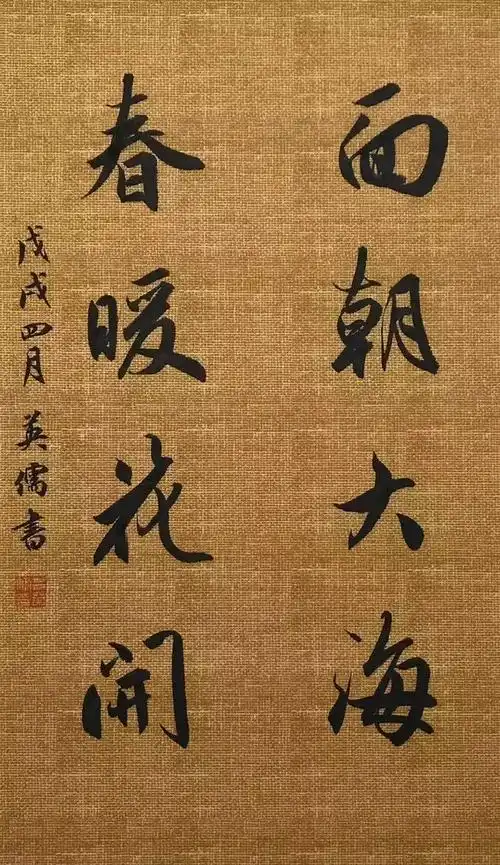 面朝大海
春暖花開
戊戌四月英儒書